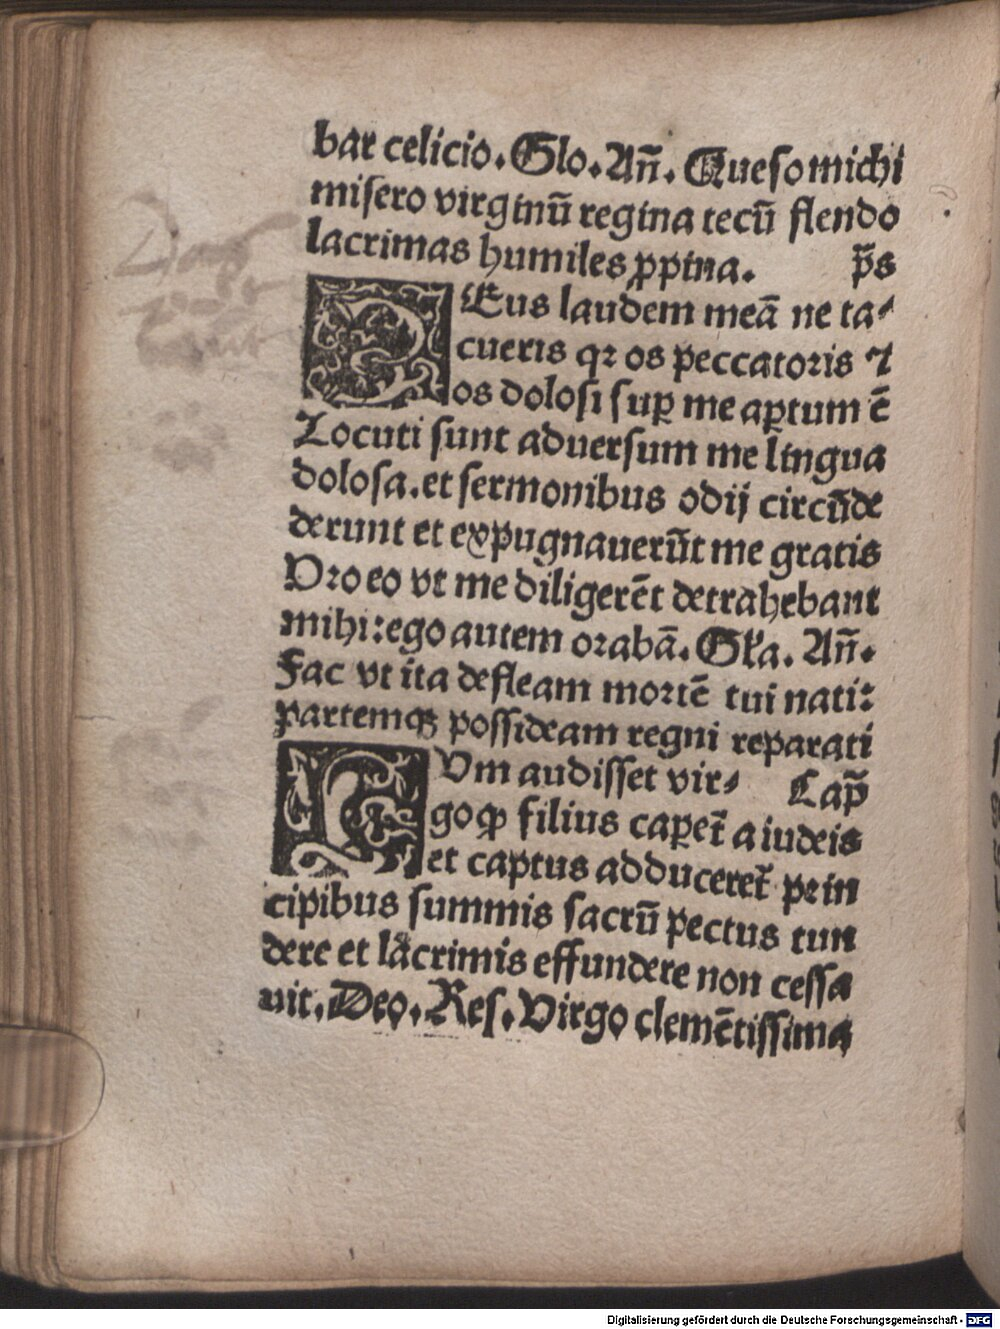 bat celicio. Glo. Añ. Queso michi
misero virginū regina tecū flendo
lacrimas humiles ꝓpina. p̄s
DEus laudem meā ne ta⸗
cueris qꝛ os peccatoꝛis ⁊
os dolosi suꝑ me aꝑtum ē
Locuti sunt aduersum me lingua
dolosa. et sermonibus odij circūde
derunt et expugnauerūt me gratis
Pꝛo eo vt me diligerēt detrahebant
mihi: ego autem oꝛabā. Gľa. Añ.
Fac vt ita defleam moꝛtē tui nati:
partemqꝫ possideam regni reparati
CUm audisset vir⸗ Cap̄
go ꝙ filius caperet̄ a iudeis
et captus adduceret̄ prin
cipibus summis sacrū pectus tun
dere et lacrimis effundere non cessa
uit. Deo. Res. Virgo clemētissima
Digitalisierung gefördert durch die Deutsche Forschungsgemeinschaft - DFG